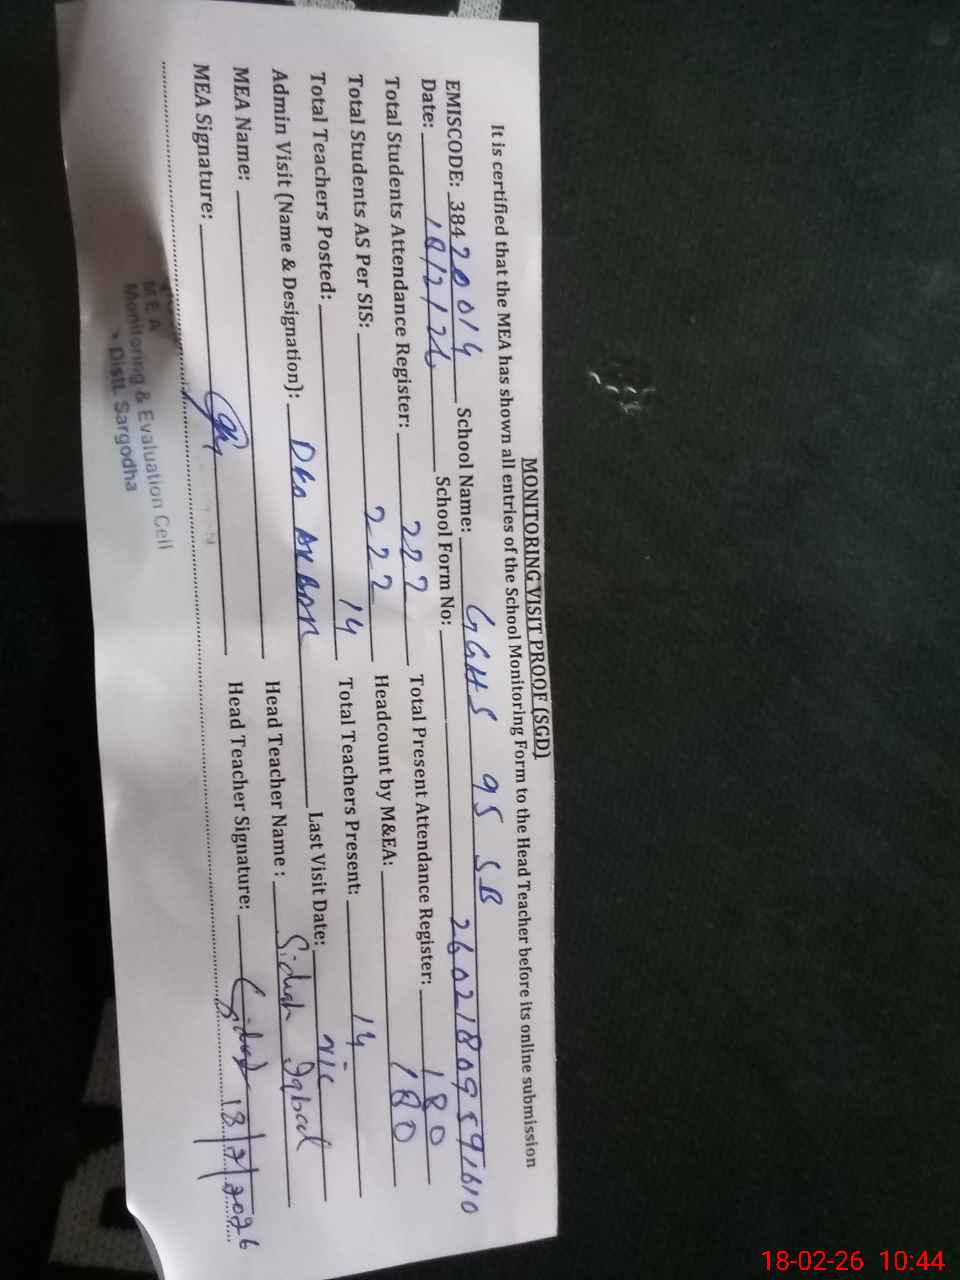 MONITORING VISIT PROOF (SGD)
It is certified that the MEA has shown all entries of the School Monitoring Form to the Head Teacher before its online submission
EMISCODE: 38420014 School Name: GGHS 95 SB
Date: 18/2/26 School Form No: 26021809591610
Total Students Attendance Register: 222 Total Present Attendance Register: 180
Total Students AS Per SIS: 222 Headcount by M&EA: 180
Total Teachers Posted: 14 Total Teachers Present: 14
Admin Visit (Name & Designation): Last Visit Date:
MEA Name: Head Teacher Name : Sidrah Iqbal
MEA Signature: Head Teacher Signature: 18/2/2026
M E A
Monitoring & Evaluation Cell
Distt. Sargodha
18-02-26 10:44